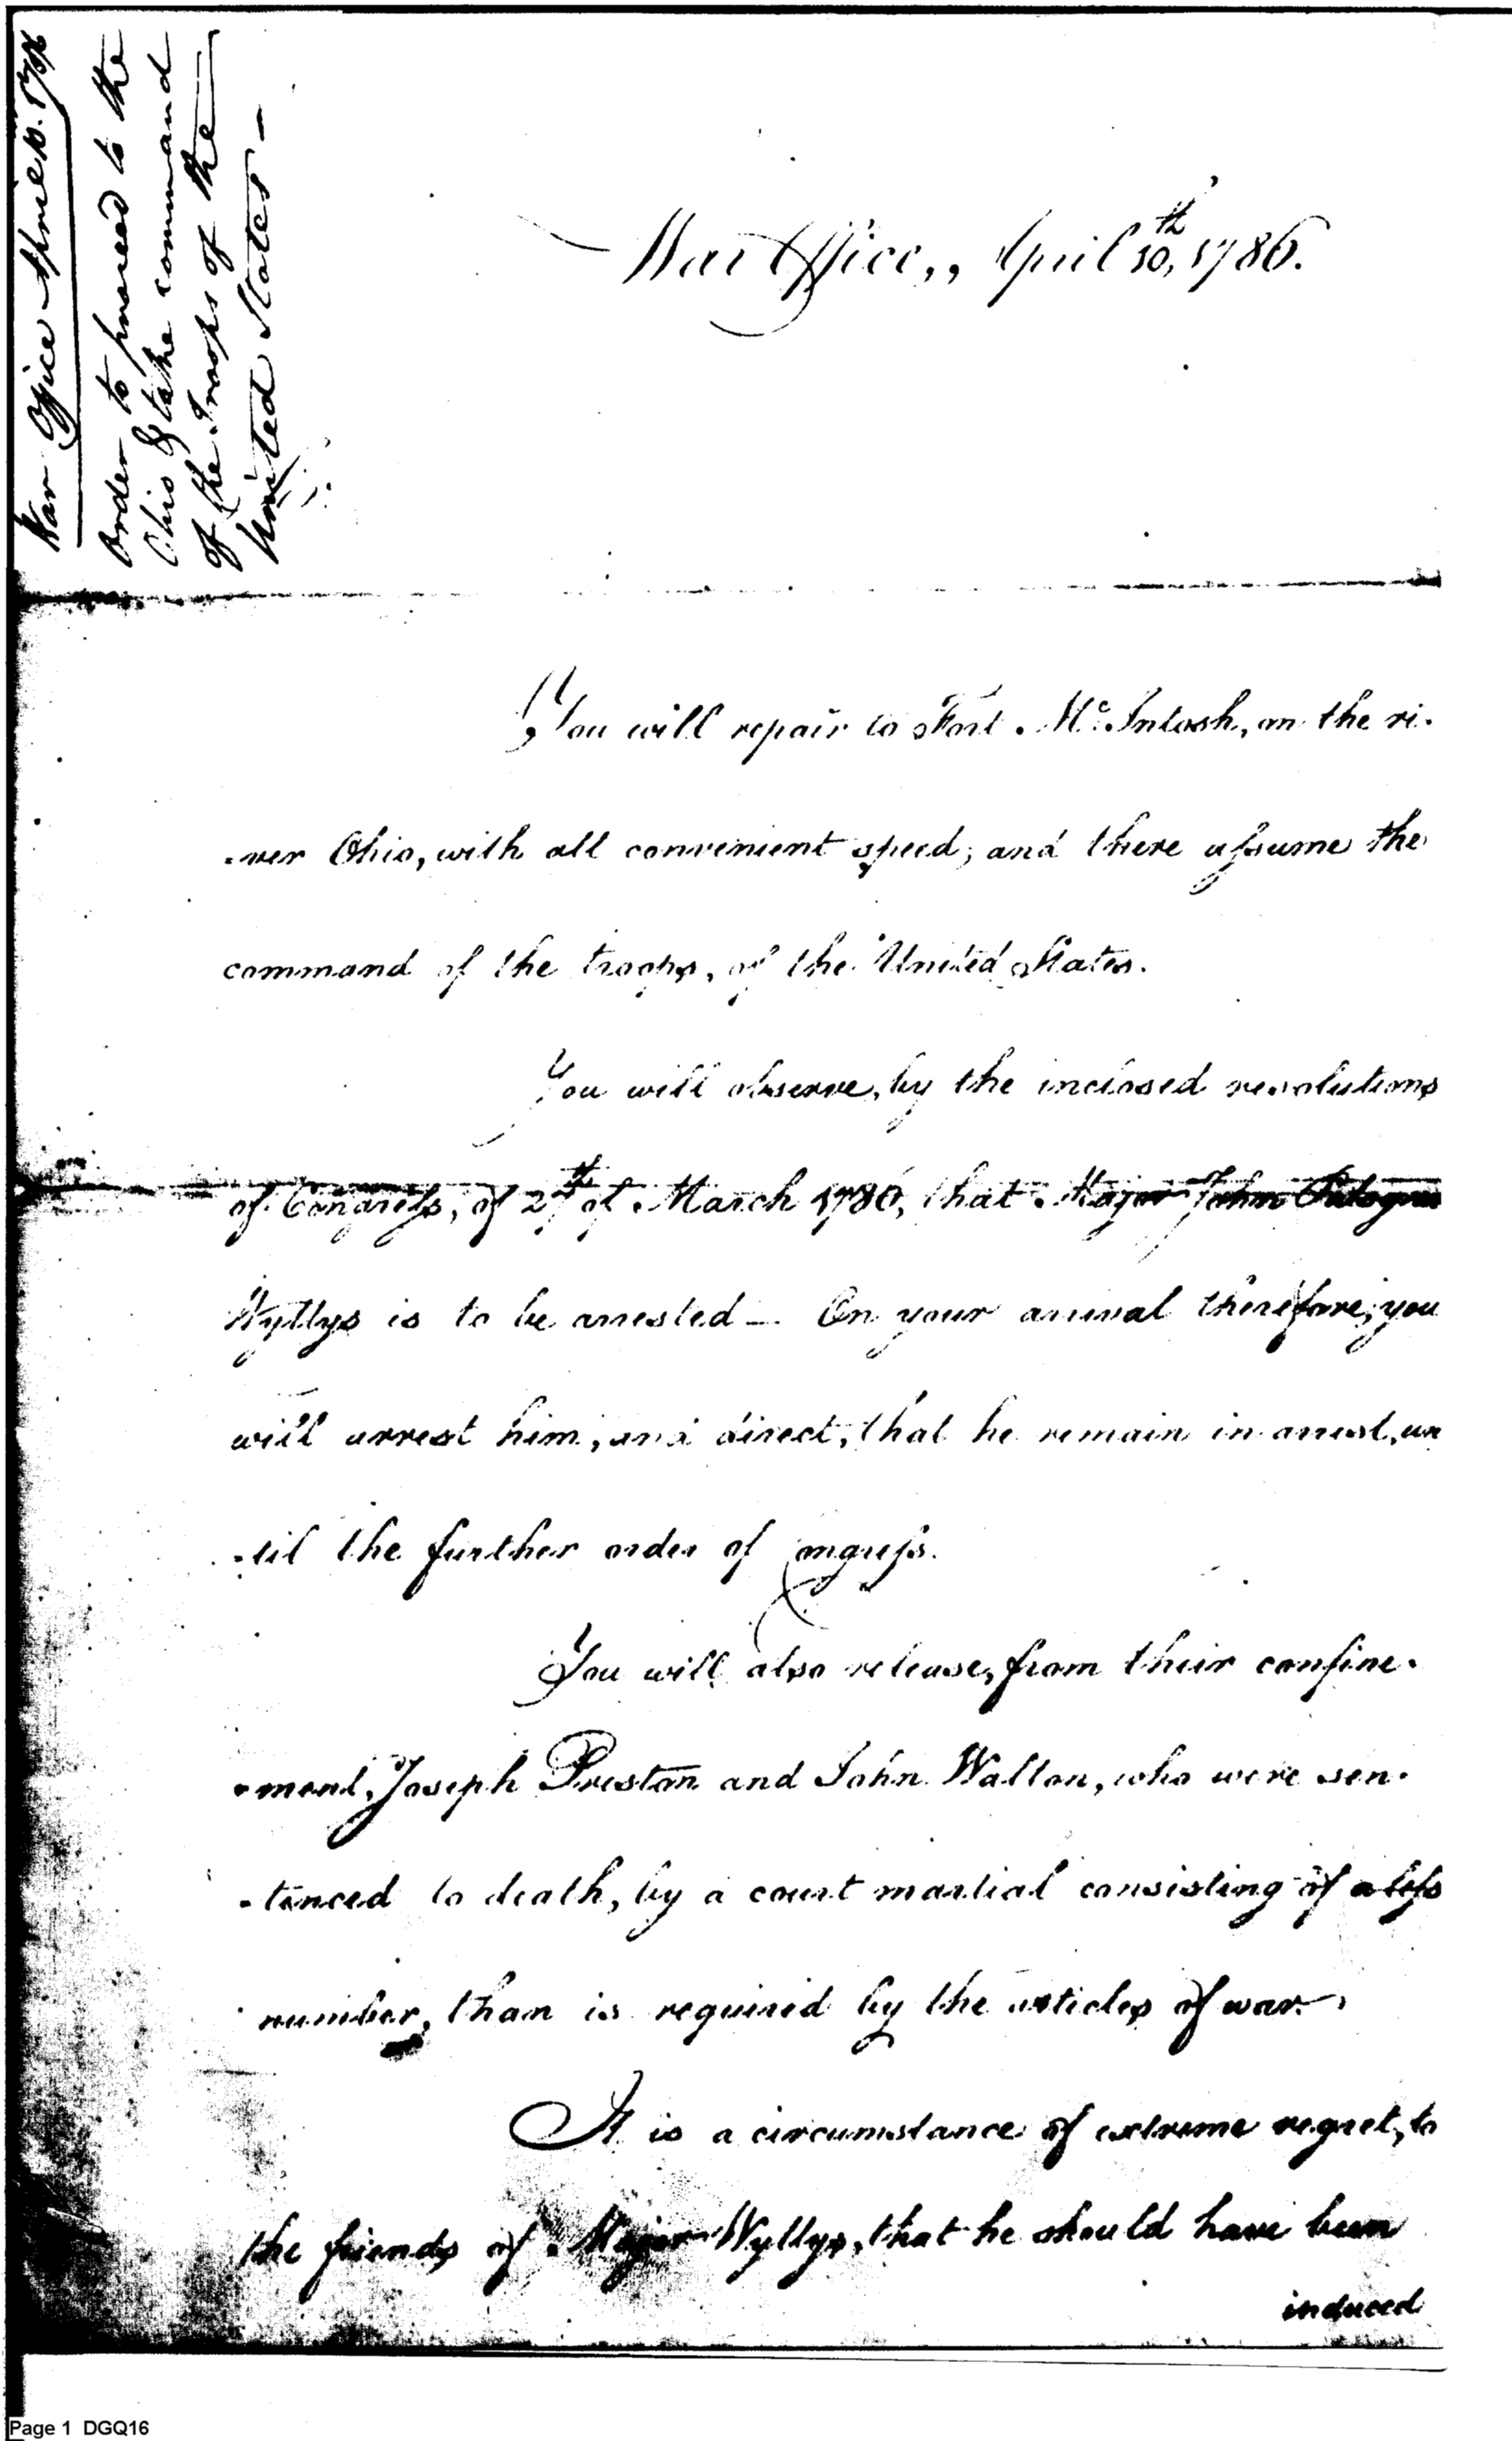 War Office April 10. 1786
Order to proceed to the
Ohio & take command
of the Troops of the
United States -
War Office,, April 10,th 1786.
You will repair to Fort Mc.Intosh, on the ri-
-ver Ohio, with all convenient speed; and there assume the
command of the troops, of the United States.
You will observe, by the inclosed resolutions
of Congress, of 27th of March 1786, that Major John Palsgrave
Wyllys is to be arrested — On your arrival therefore, you
will arrest him, and direct, that he remain in arrest, un
-til the further order of Congress.
You will also release, from their confine-
-ment, Joseph Preston and John Walton, who were sen-
-tenced to death, by a court martial consisting of a less
number, than is required by the articles of war.
It is a circumstance of extreme regret, to
the friends of Major Wyllys, that he should have been
induced
Page 1 DGQ16